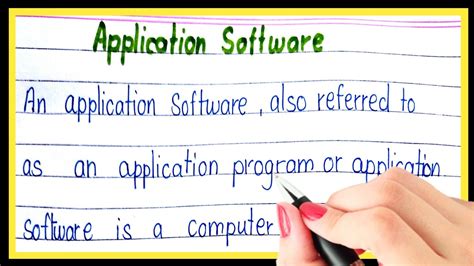 Application Software
An application Software, also referred to
as an application program or application
Software is a computer